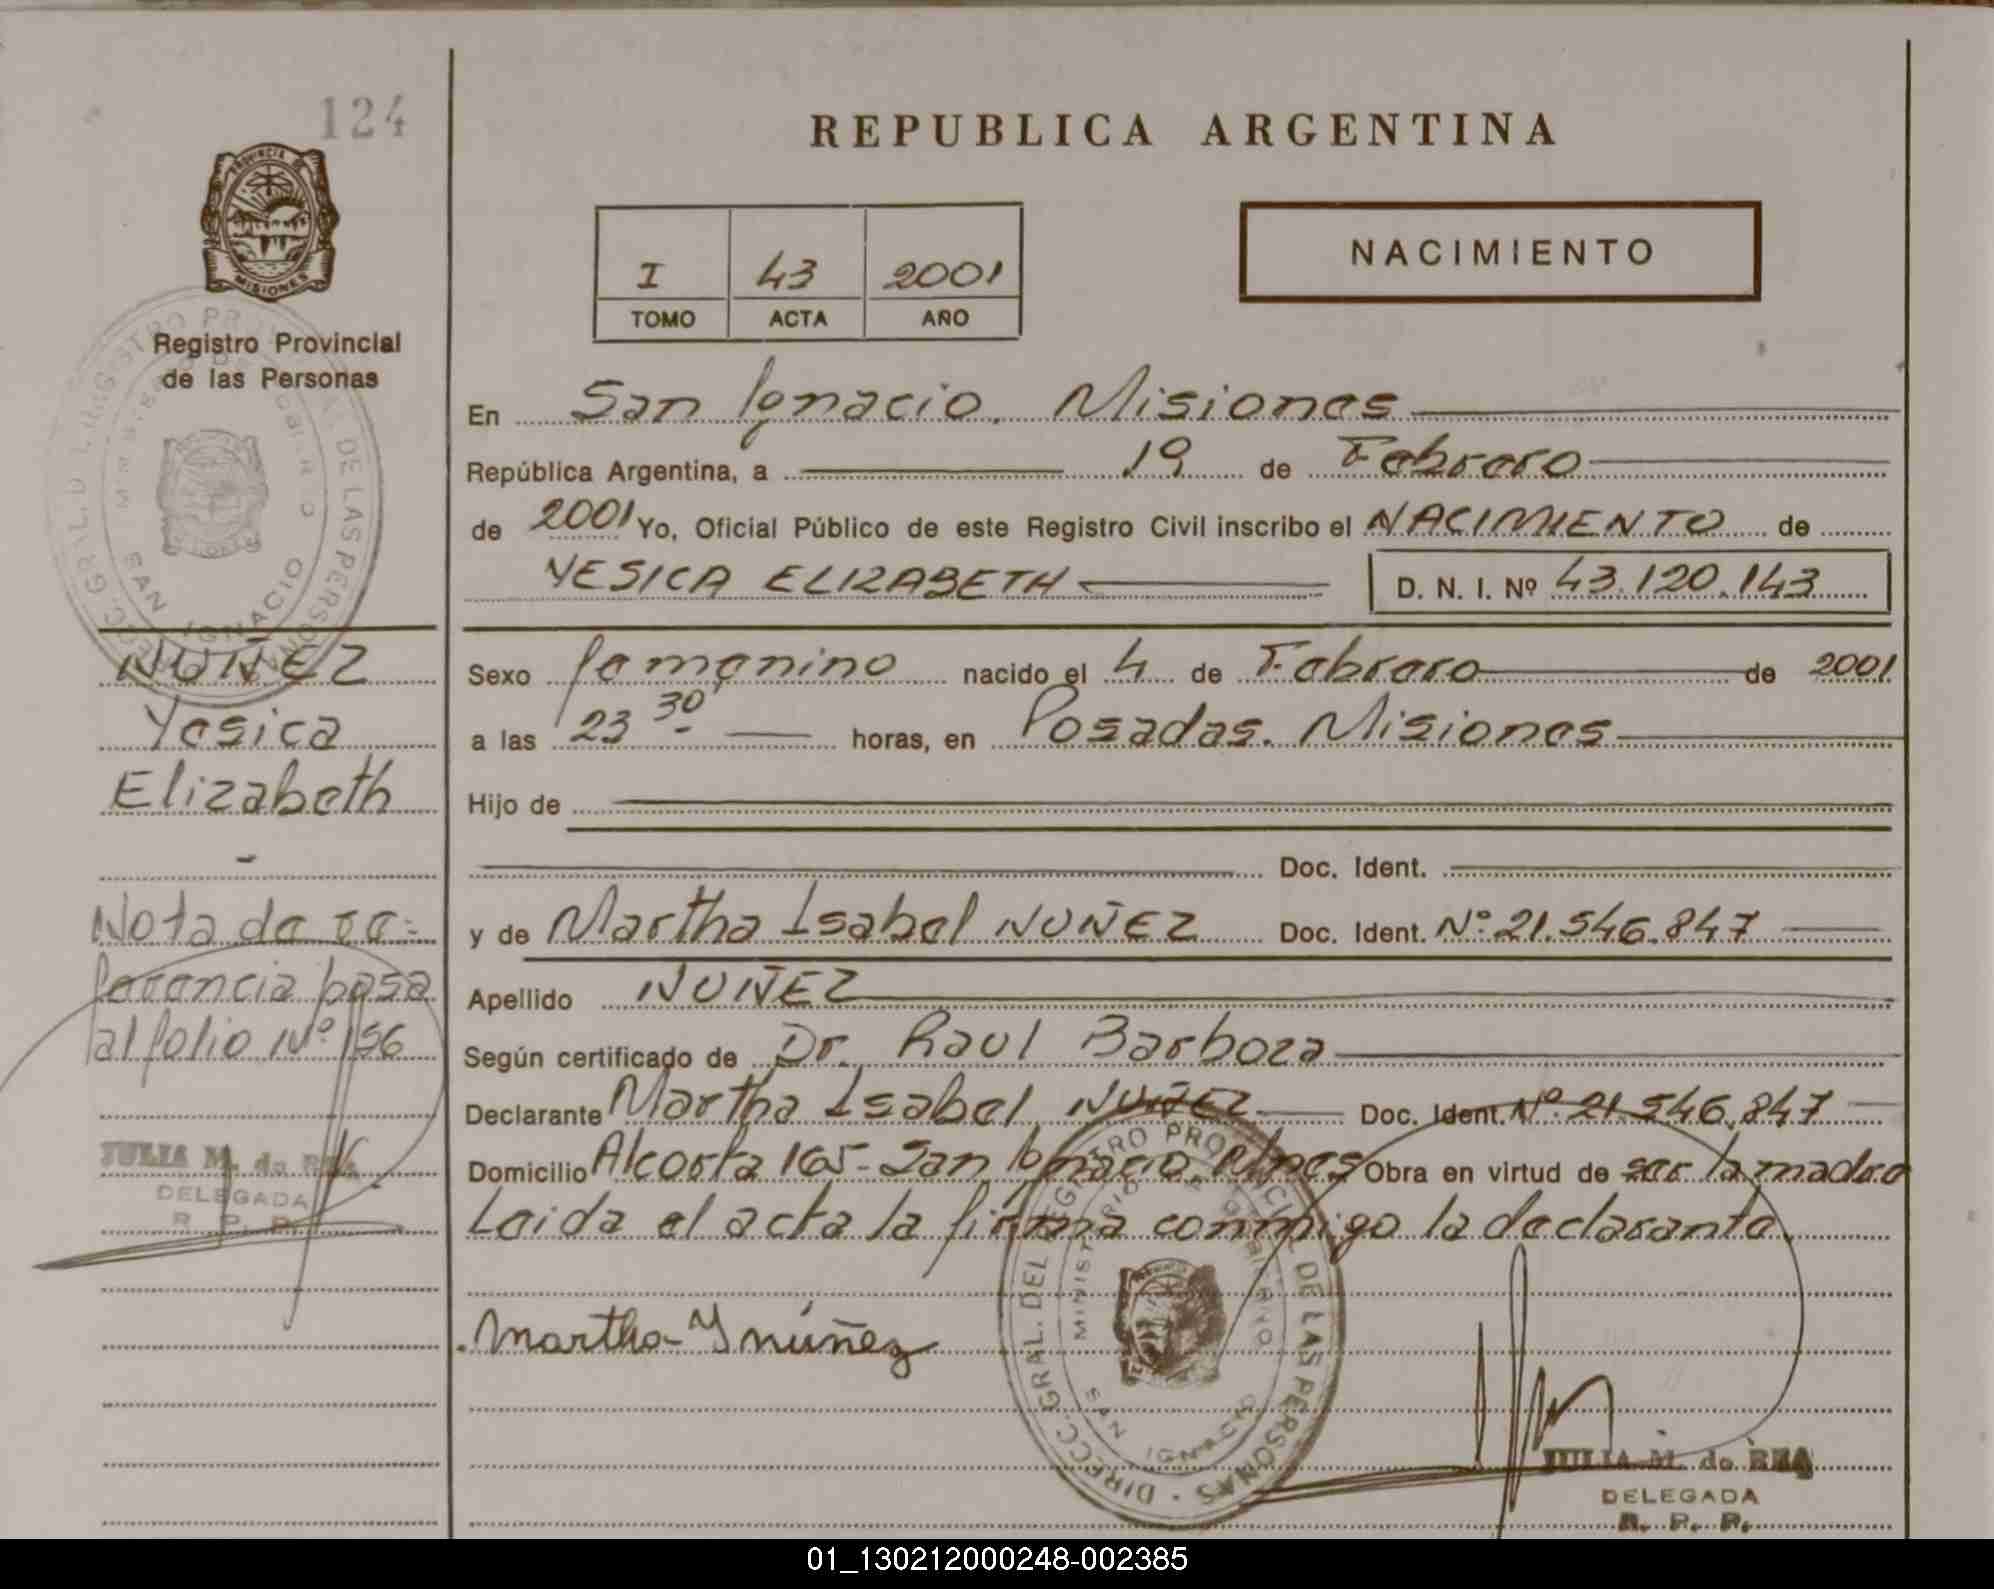 124
PROVINCIA DE
MISIONES
Registro Provincial
de las Personas
NUÑEZ
Yesica
Elizabeth
-
Nota de re=
ferencia pasa
al folio Nº 156
JULIA M. de REA
DELEGADA
R. P. P.
REPUBLICA ARGENTINA
I 43 2001
TOMO ACTA AÑO
NACIMIENTO
En San Ignacio. Misiones
República Argentina, a 19 de Febrero
de 2001 Yo, Oficial Público de este Registro Civil inscribo el NACIMIENTO de
YESICA ELIZABETH D. N. I. Nº 43.120.143
Sexo femenino nacido el 4 de Febrero de 2001
a las 23 30' horas, en Posadas. Misiones
Hijo de
Doc. Ident.
y de Martha Isabel NUÑEZ Doc. Ident. Nº 21.546.847
Apellido NUÑEZ
Según certificado de Dr. Raul Barboza
Declarante Martha Isabel NUÑEZ Doc. Ident. Nº 21.546.847
Domicilio Alcorta 165- San Ignacio, Mnes Obra en virtud de ser la madre
Leida el acta la firma conmigo la declarante.
Martha Y núñez
DIRECC. GRAL. DEL REGISTRO PROVINCIAL DE LAS PERSONAS
MINISTERIO DE GOBIERNO
SAN IGNACIO
JULIA M. de REA
DELEGADA
R. P. P.
01_130212000248-002385